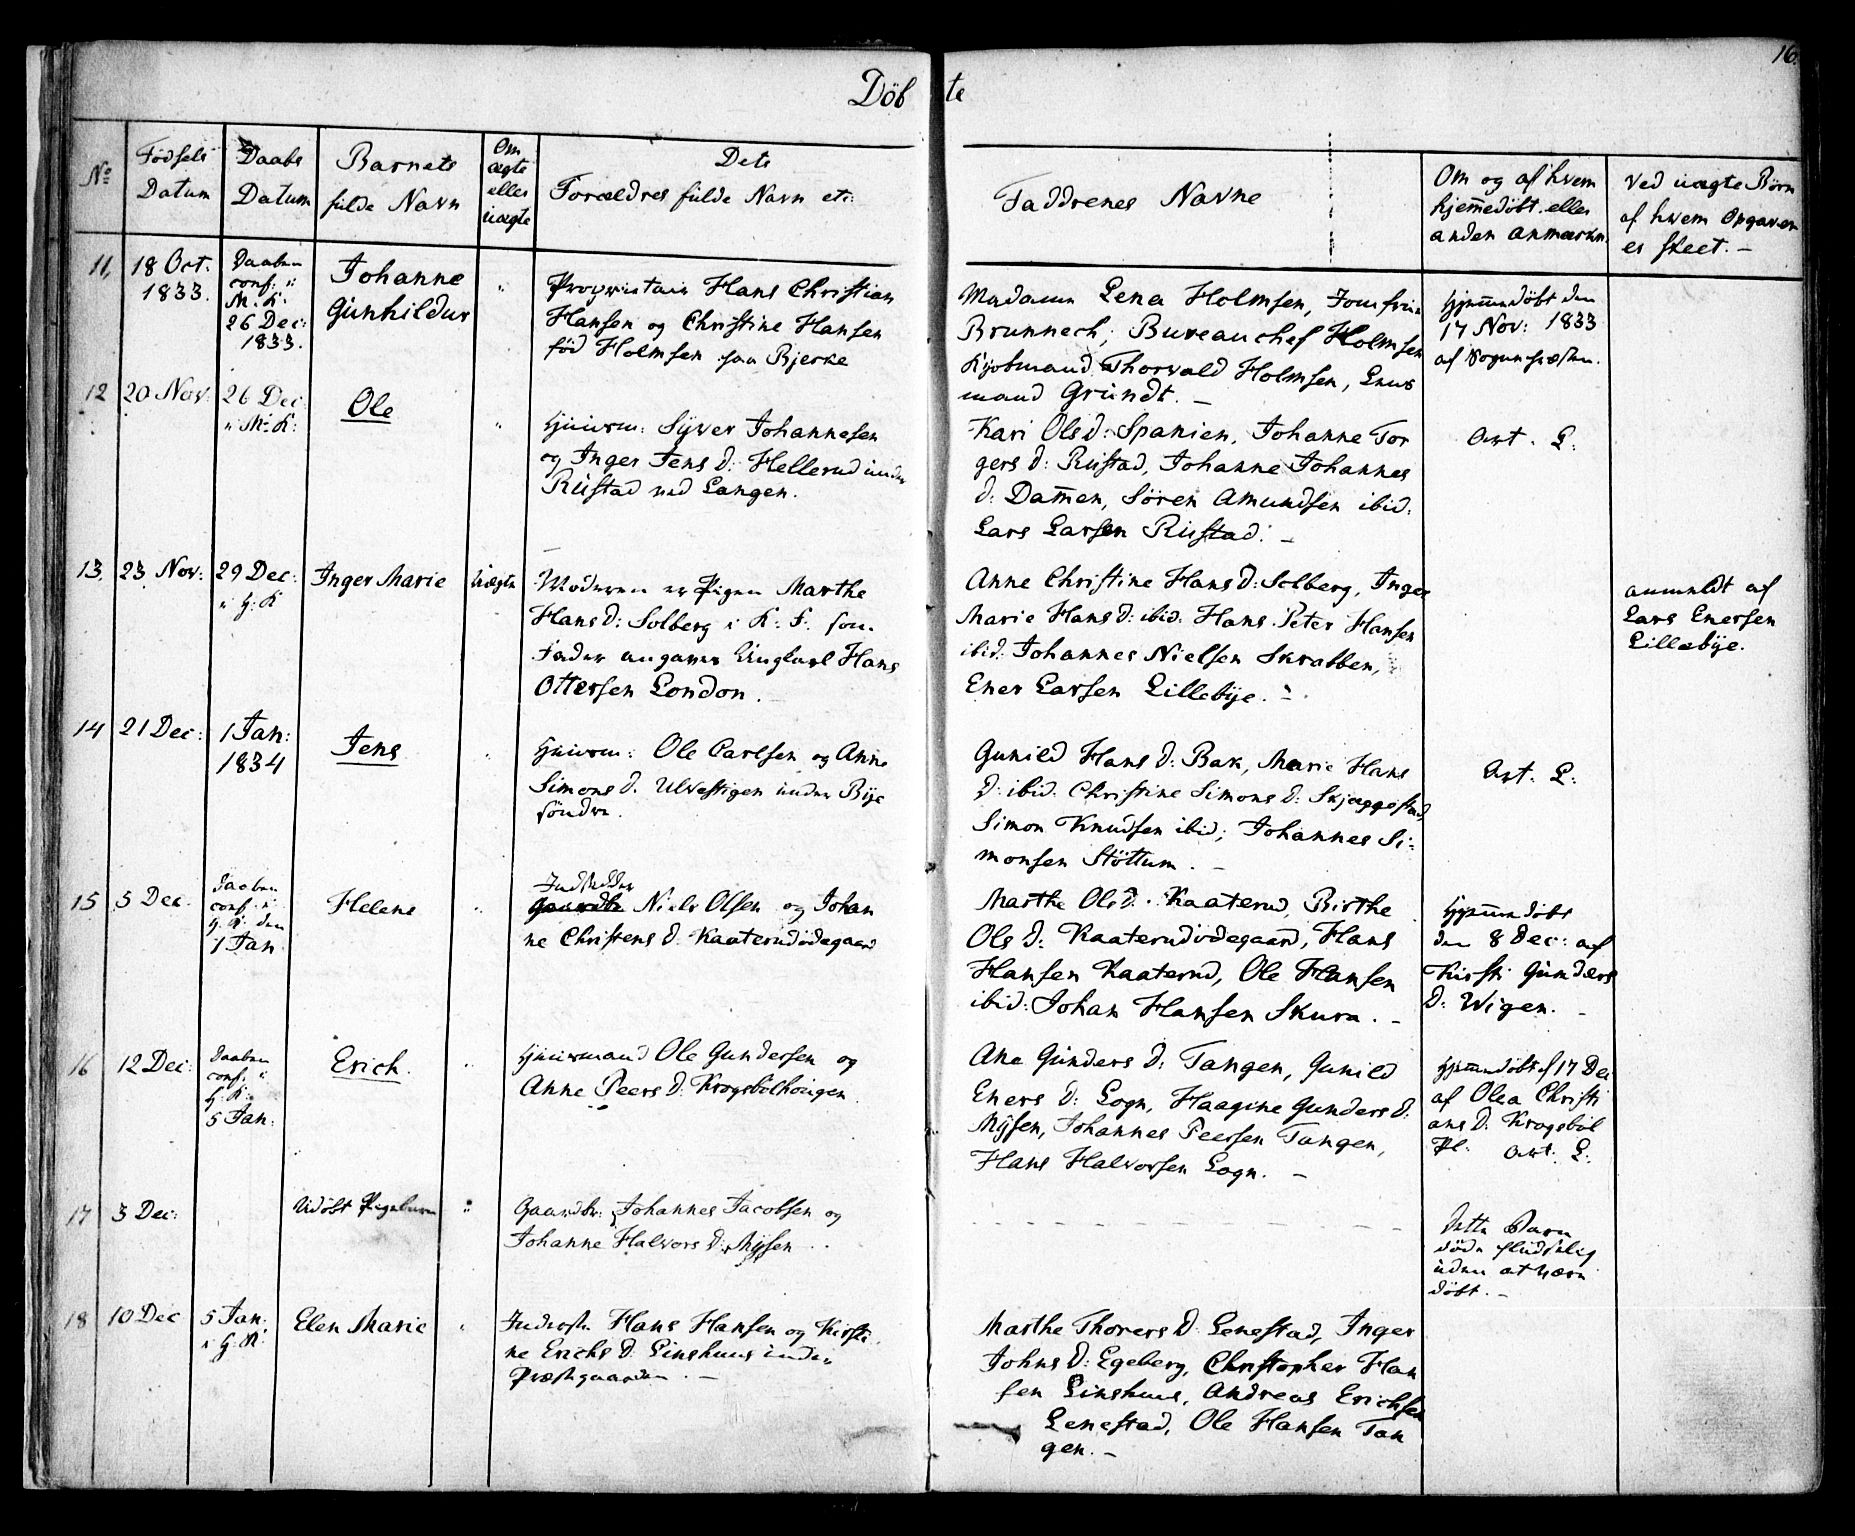 16.
Döbte
No
Födsels
Datum
Daabs
Datum
Barnets
fulde Navn
Om
ægte
eller
uægte
Dets
Forældres fulde Navn etc:
Faddrenes Navne
Om og af hvem
hjemmedöbt eller
anden Anmærkn.
Ved uægte Börn
af hvem Opgaven
er skeet. –
11,
18 Oct.
1833.
Daaben
conf. i
M. K.
26 Dec:
1833.
Johanne
Gunhildur
"
Proprietair Hans Christian
Hansen og Christine Hansen
föd Holmsen paa Bjerke
Madame Lena Holmsen, Jomfrue
Brunnech, Bureauchef Holmsen
Kjöbmand Thorvald Holmsen, Lens
mand Gründt. –
Hjemmedöbt den
17 Nov: 1833
af Sognepræsten.
12
20 Nov.
26 Dec.
i M. K:
Ole
"
Huusm: Syver Johannesen
og Inger Jens d: Hellerud under
Rustad ved Langen.
Kari Ols d: Spanien, Johanne Tor
gers d: Rustad, Johanne Johannes
d: Dammen, Sören Amundsen ibid:
Lars Larsen Rustad. –
Art. L:
13.
23 Nov:
29 Dec:
i H: K
Inger Marie
Uægte
Moderen er Pigen Marthe
Hans d: Solberg i K: F. som
Fader angaves Ungkarl Hans
Ottersen London.
Anne Christine Hans d: Solberg, Inger
Marie Hans d: ibid: Hans Peter Hansen
ibid: Johannes Nielsen Skrabben,
Ener Larsen Lillebye. –
anmeldt af
Lars Enersen
Lillebye.
14
21 Dec:
1 Jan:
1834
Jens
"
Huusm: Ole Carlsen og Anne
Simons d. Ulvestigen under Bye
söndre.
Gunild Hans d: Bak, Marie Hans
d: ibid. Christine Simons d: Skjæggestad,
Simon Knudsen ibid; Johannes Si-
monsen Stöttum. –
Art. L:
15
5 Dec.
Daaben
conf. i
H. K. den
1 Jan
Helene
"
Indsidder
Gaardbr Niels Olsen og Johan
ne Christens d. Kaaterudödegaard
Marthe Ols d. Kaaterud, Birthe
Ols d: Kaaterudödegaard, Hans
Hansen Kaaterud, Ole Hansen
ibid: Johan Hansen Skura. –
Hjemmedöbt
den 8 Dec: af
Kirsti Gunders
d: Wigen. –
16
12 Dec:
Daaben
conf. i
H. K.
5 Jan:
Erich.
"
Huusmand Ole Gundersen og
Anne Peers d: Krogsbölhougen.
Ane Gunders d: Tangen, Gunild
Eners d: Logn, Haagine Gunders d:
Mysen, Johannes Peersen Tangen,
Hans Halvorsen Logn. –
Hjemmedöbt 17 Dec
af Olea Christi
ans d. Krogsböl
Pl. Art. L:
17
3 Dec:
Udöbt Pigebarn
"
Gaardbr: Johannes Jacobsen og
Johanne Halvors d: Mysen
Dette Barn
döde pludselig
uden at være
döbt. –
18
10 Dec
5 Jan:
i H: K:
Elen Marie
"
Inderst Hans Hansen og Kirsti
ne Erichs d: Linshuus under
Præstegaarden. –
Marthe Thorers d: Lenestad, Inger
Johns d: Egeberg, Christopher Han
sen Linshuus, Andreas Erichsen
Lenestad, Ole Hansen Tan
gen. –